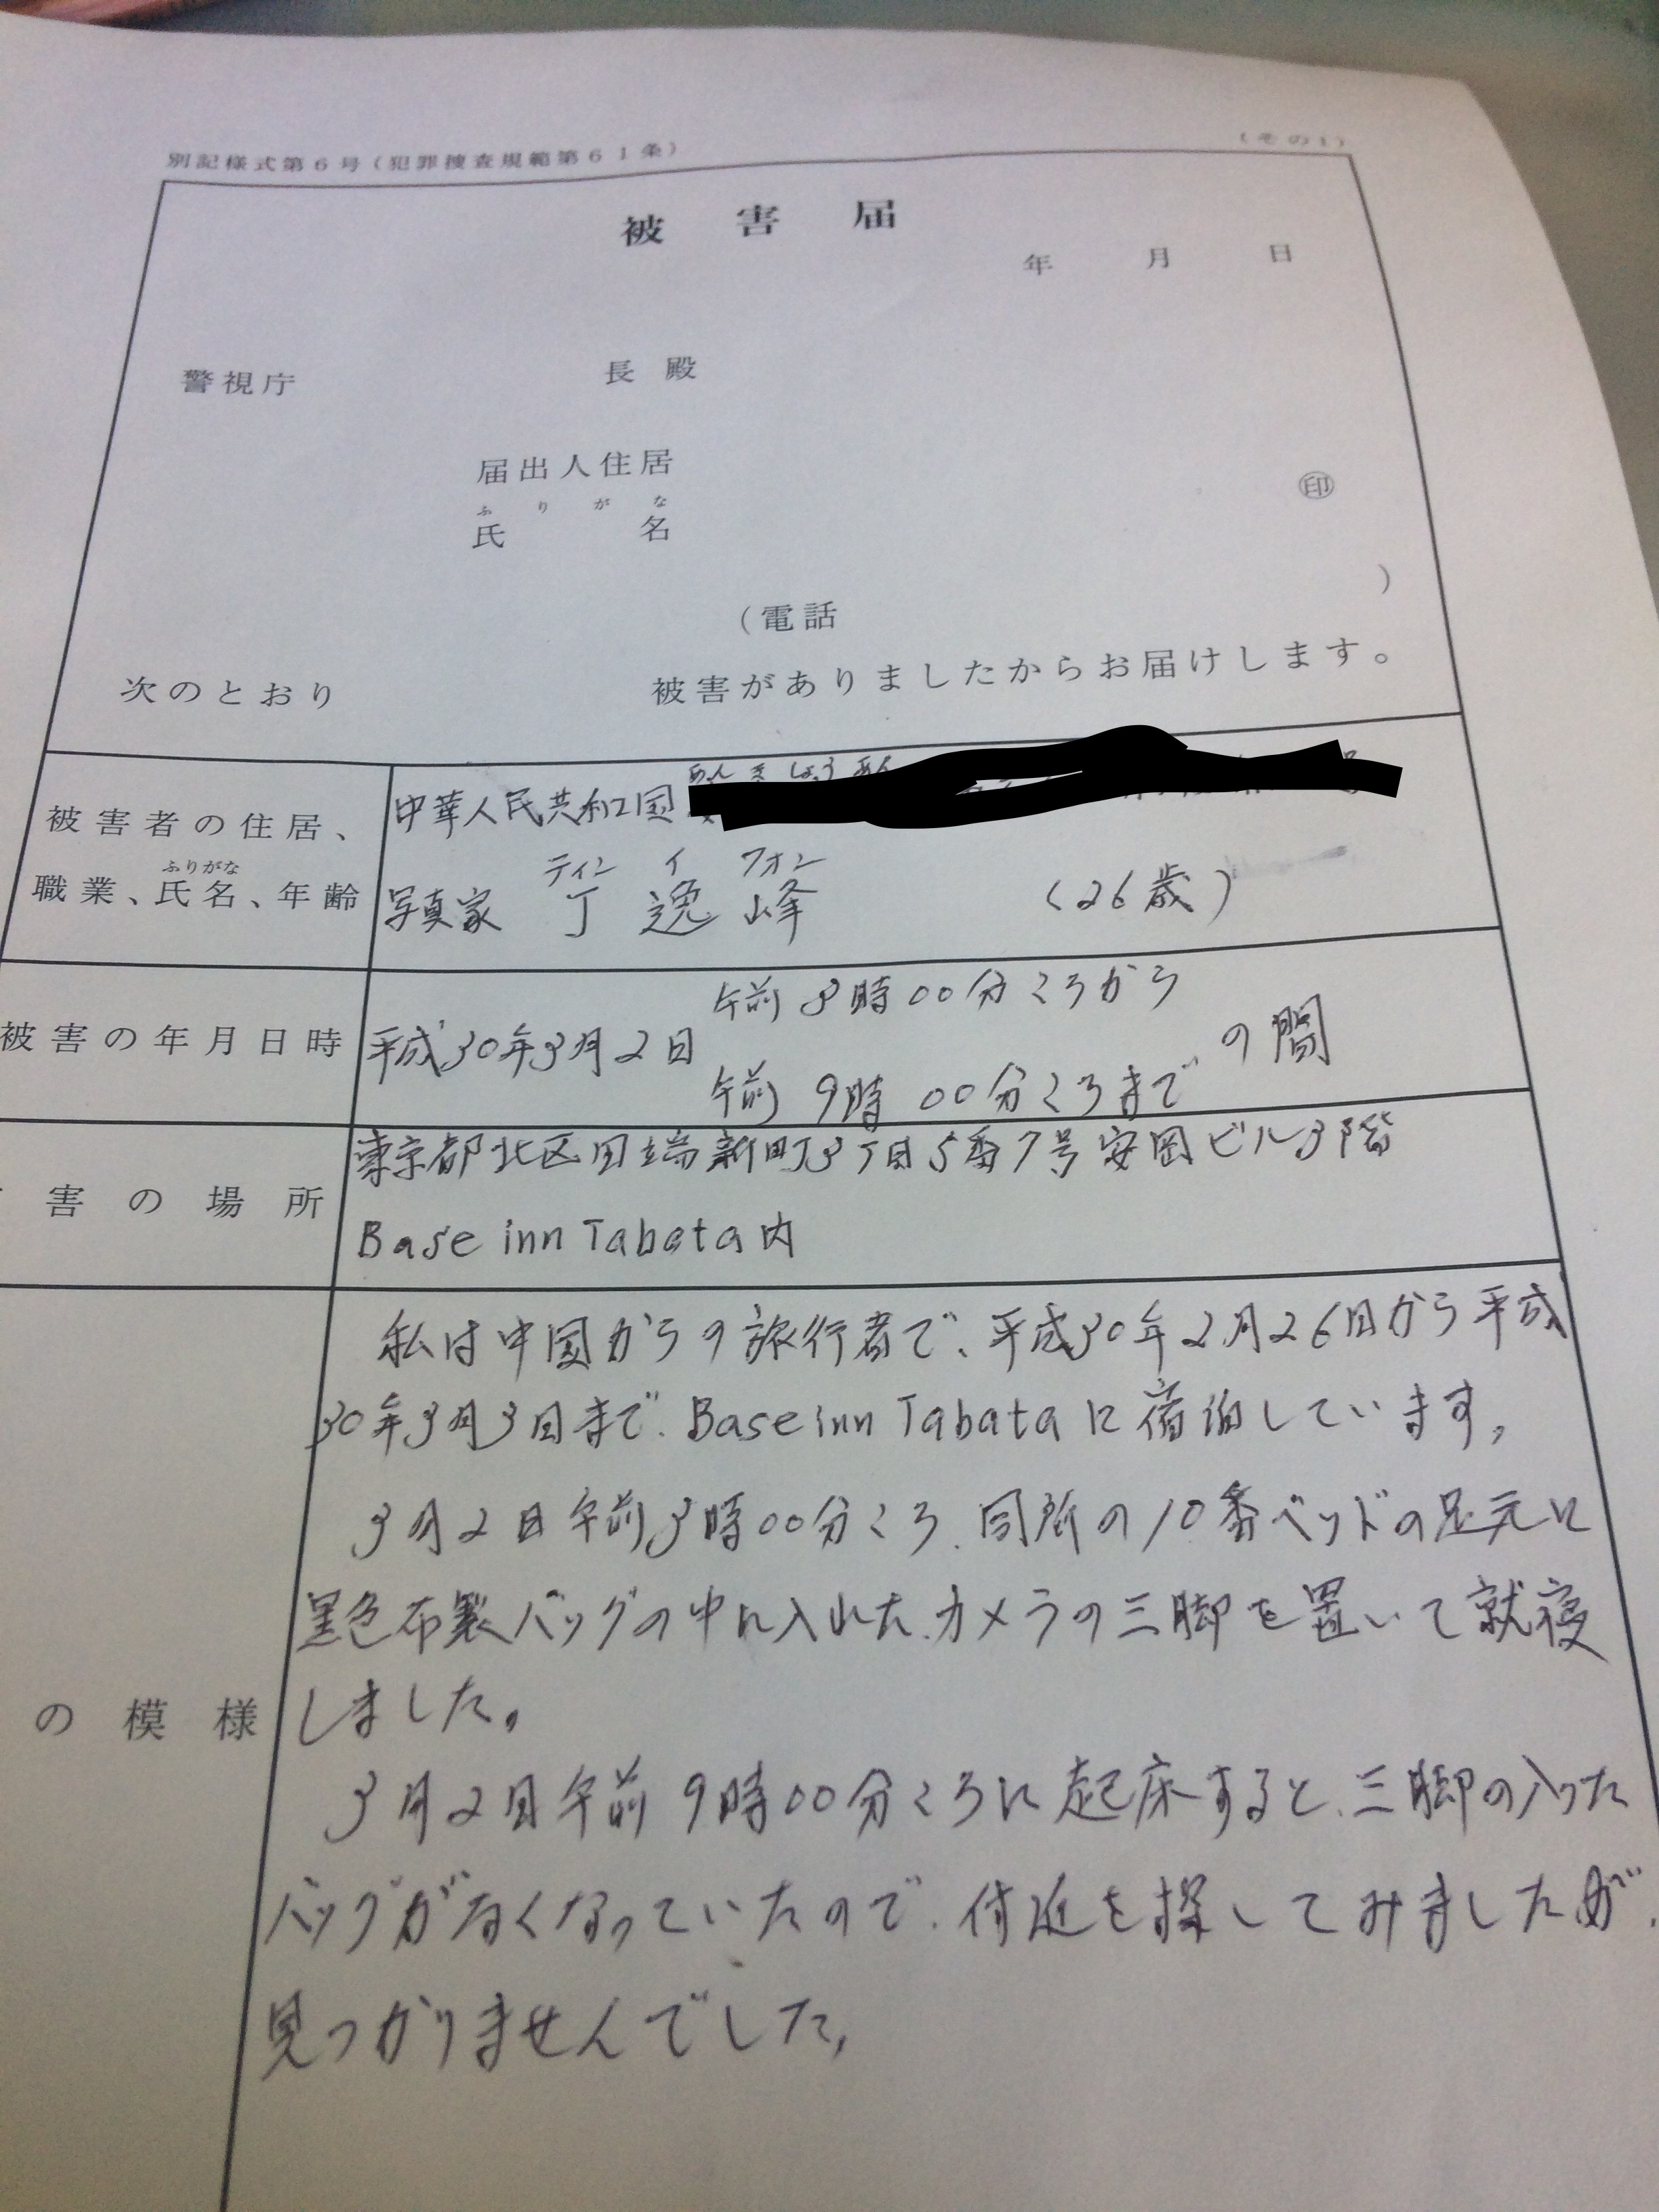 別記様式第6号(犯罪捜査規範第61条)
(その1)
被害届
年 月 日
警視庁 長殿
届出人住居
ふりがな
氏名 ㊞
(電話 )
次のとおり 被害がありましたからお届けします。
被害者の住居、
職業、氏名、年齢
ふりがな
中華人民共和国
ティン イ フォン
写真家 丁 逸 峰 (26歳)
被害の年月日時
午前3時00分ころから
平成30年3月2日 の間
午前9時00分ころまで
害の場所
東京都北区田端新町3丁目5番7号安岡ビル3階
Base inn Tabata内
の模様
私は中国からの旅行者で、平成30年2月26日から平成
30年3月3日まで、Base inn Tabataに宿泊しています。
3月2日午前3時00分ころ、同所の10番ベッドの足元に
黒色布製バッグの中に入れた、カメラの三脚を置いて就寝
しました。
3月2日午前9時00分ころに起床すると、三脚の入った
バッグがなくなっていたので、付近を探してみましたが、
見つかりませんでした。